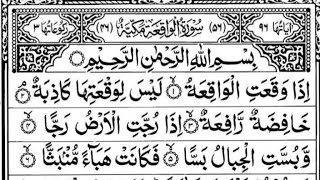 اٰیَاتُهَا ٩٦ (٥٦) سُوْرَةُ الْوَاقِعَةِ مَكِّیَّةٌ (٤٦) رُكُوْعَاتُهَا ٣
بِسْمِ اللّٰهِ الرَّحْمٰنِ الرَّحِیْمِ
اِذَا وَقَعَتِ الْوَاقِعَةُ ۝١ لَیْسَ لِوَقْعَتِهَا كَاذِبَةٌ ۝٢
خَافِضَةٌ رَّافِعَةٌ ۝٣ اِذَا رُجَّتِ الْاَرْضُ رَجًّا ۝٤
وَّ بُسَّتِ الْجِبَالُ بَسًّا ۝٥ فَكَانَتْ هَبَآءً مُّنْۢبَثًّا ۝٦